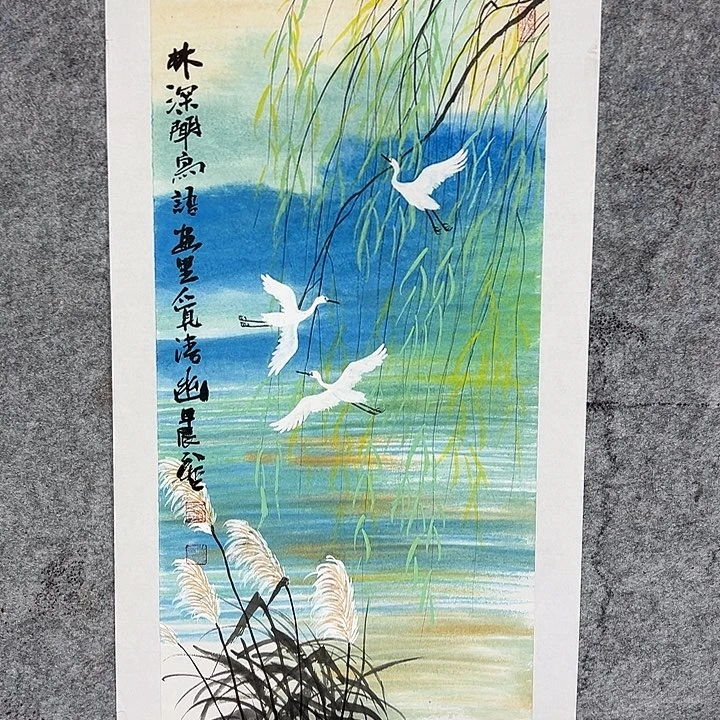 林深聞鳥語畫里覓清幽晨